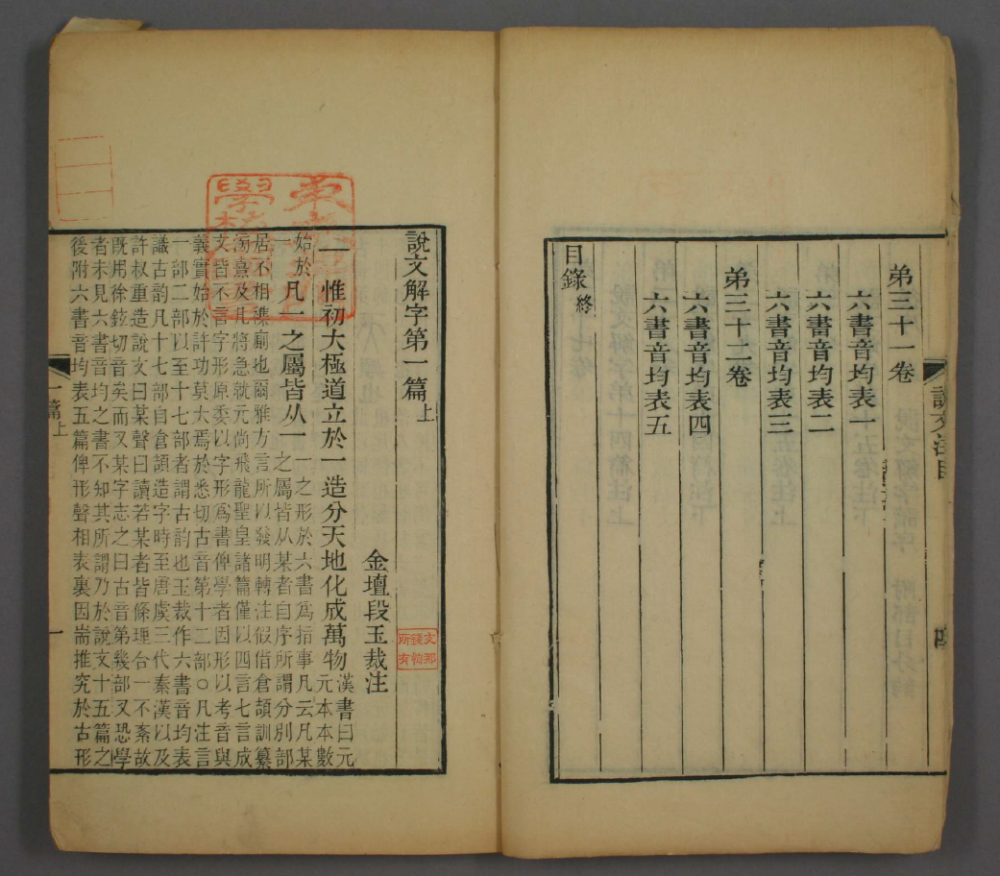 說文注目
弟三十一卷
六書音均表一
六書音均表二
六書音均表三
弟三十二卷
六書音均表四
六書音均表五
目錄終
說文解字第一篇上
金壇段玉裁注
一惟初大極道立於一造分天地化成萬物漢書曰元
元本本數
始於
一
凡一之屬皆从一
一之形於六書爲指事凡云凡某
之屬皆从某者自序所謂分別部
居不相襍廁也爾雅方言所以發明轉注假借倉頡訓纂
滂熹及凡將急就元尚飛龍聖皇諸篇僅以四言七言成
文皆不言字形原委以字形爲書俾學者因形以考音與
義實始於許功莫大焉於悉切古音第十二部○凡注言
一部二部以至十七部者謂古韵也玉裁作六書音均表
識古韵凡十七部自倉頡造字時至唐虞三代秦漢以及
許叔重造說文曰某聲曰讀若某者皆條理合一不紊故
既用徐鉉切音矣而又某字志之曰古音第幾部又恐學
者未見六書音均之書不知其所謂乃於說文十五篇之
後附六書音均表五篇俾形聲相表裏因耑推究於古形
一篇上
一